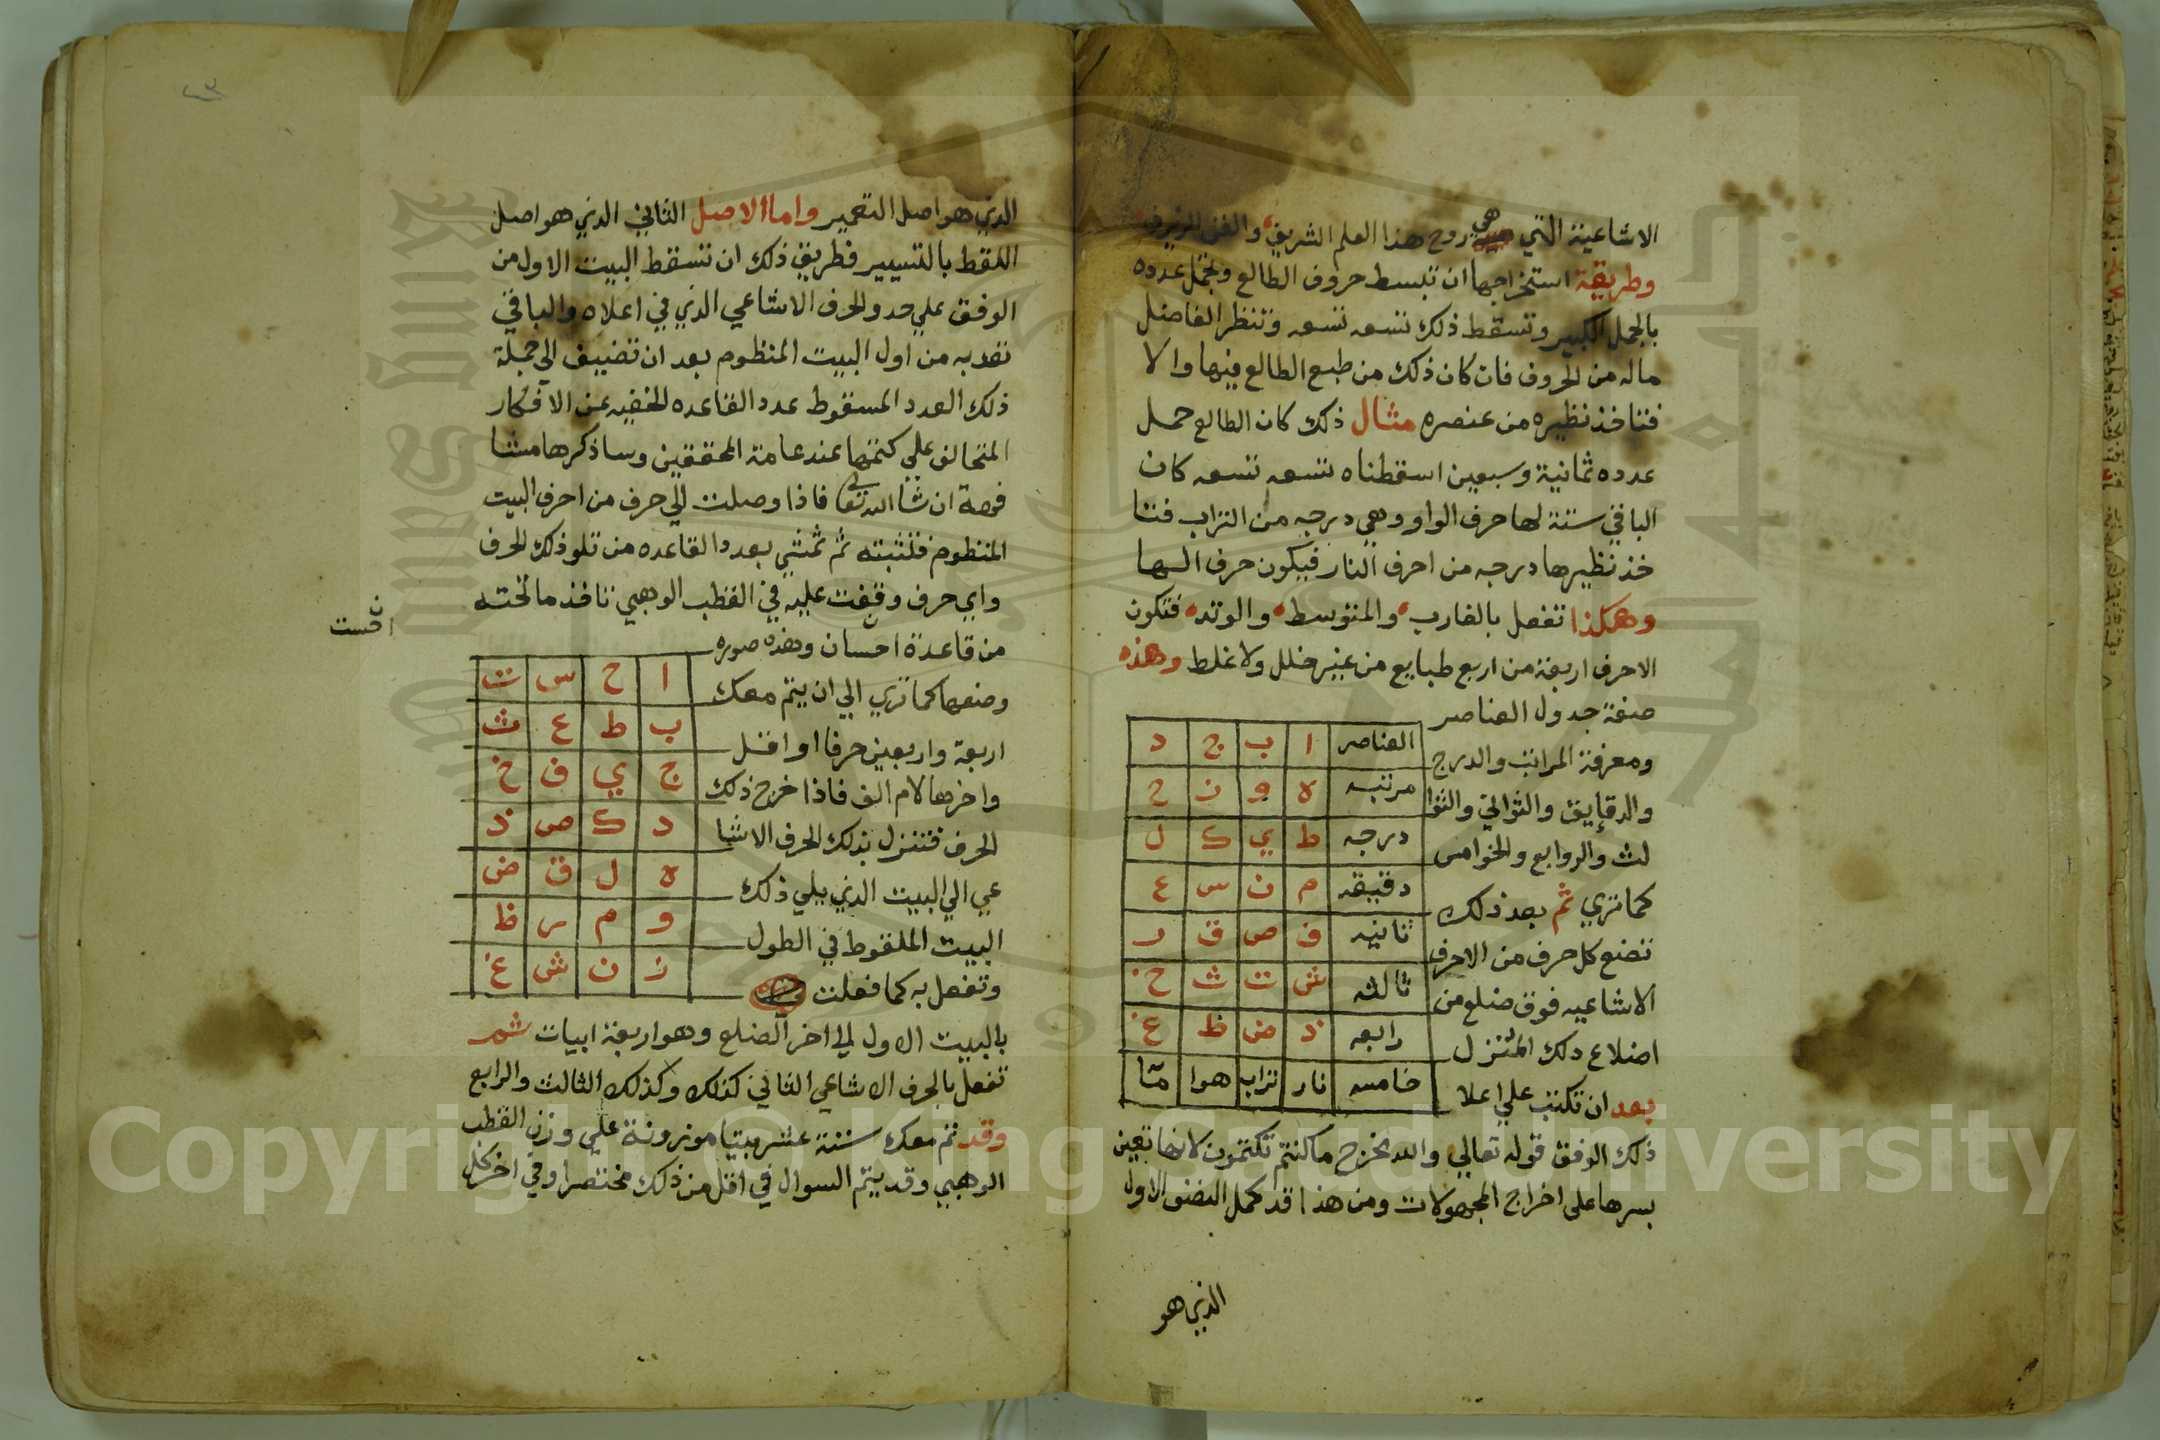 الاشاعية التي هي روح هذا العلم الشريف والفن الظريف
وطريقة استخراجها ان تبسط حروف الطالع وتجمل عدده
بالجمل الكبير وتسقط ذلك تسعه تسعه وتنظر الفاضل
ماله من الحروف فان كان ذلك من طبع الطالع فيها والا
فتاخذ نظيره من عنصره مثال ذلك كان الطالع حمل
عدده ثمانية وسبعين اسقطناه تسعه تسعه كان
الباقي ستة لها حرف الواو وهي درجه من التراب فتا
خذ نظيرها درجه من احرف النار فيكون حرف الها
وهكذا تفعل بالغارب والمتوسط والوتد فتكون
الاحرف اربعة من اربع طبايع من غير خلل ولا غلط وهذه
صفة جدول العناصر
ومعرفة المراتب والدرج
والدقايق والثواني والثوا
لث والروابع والخوامس
كما تري ثم بعد ذلك
تضع كل حرف من الاحرف
الاشاعيه فوق ضلع من
اضلاع ذلك المنزل
بعد ان تكتب علي اعلا
العناصر ا ب ج د
مرتبه ه و ز ح
درجه ط ي ك ل
دقيقه م ن س ع
ثانيه ف ص ق ر
ثالثه ش ت ث خ
رابعه ذ ض ظ غ
خامسه نار تراب هوا ما
ذلك الوفق قوله تعالي والله مخرج ما كنتم تكتمون لانها تعين
بسرها على اخراج المجهولات ومن هذا قد كمل النصف الاول
الذي هو
٢٣
الذي هو اصل التعمير واما الاصل الثاني الذي هو اصل
اللقط بالتسيير فطريق ذلك ان تسقط البيت الاول من
الوفق علي حد والحرف الاشاعي الذي في اعلاه والباقي
تعد به من اول البيت المنظوم بعد ان تضيف الي جملة
ذلك العدد المسقوط عدد القاعده الخفيه عن الافكار
المتحالف علي كتمها عند عامة المحققين وساذكرها مشا
فهة ان شا الله تعالى فاذا وصلت الي حرف من احرف البيت
المنظوم فتثبته ثم تمشي بعدد القاعده من تلو ذلك الحرف
واي حرف وقفت عليه في القطب الوهبي تاخذ ما تحته
من قاعدة احسان وهذه صوره
احست
وضعها كما تري الي ان يتم معك
اربعة واربعين حرفا او اقل
واخرها لام الف فاذا خرج ذلك
الحرف فتنزل بذلك الحرف الاشا
عي الي البيت الذي يلي ذلك
البيت الملقوط في الطول
وتفعل به كما فعلت
ا ح س ت
ب ط ع ث
ج ي ف خ
د ك ص ذ
ه ل ق ض
و م ر ظ
ز ن ش غ
بالبيت الاول الي اخر الضلع وهو اربعة ابيات ثم
تفعل بالحرف الاشاعي الثاني كذلك وكذلك الثالث والرابع
وقد تم معك ستة عشر بيتا موزونة علي وزن القطب
الوهبي وقد يتم السوال في اقل من ذلك مختصرا وفي اخر كل
Copyright © King Saud University